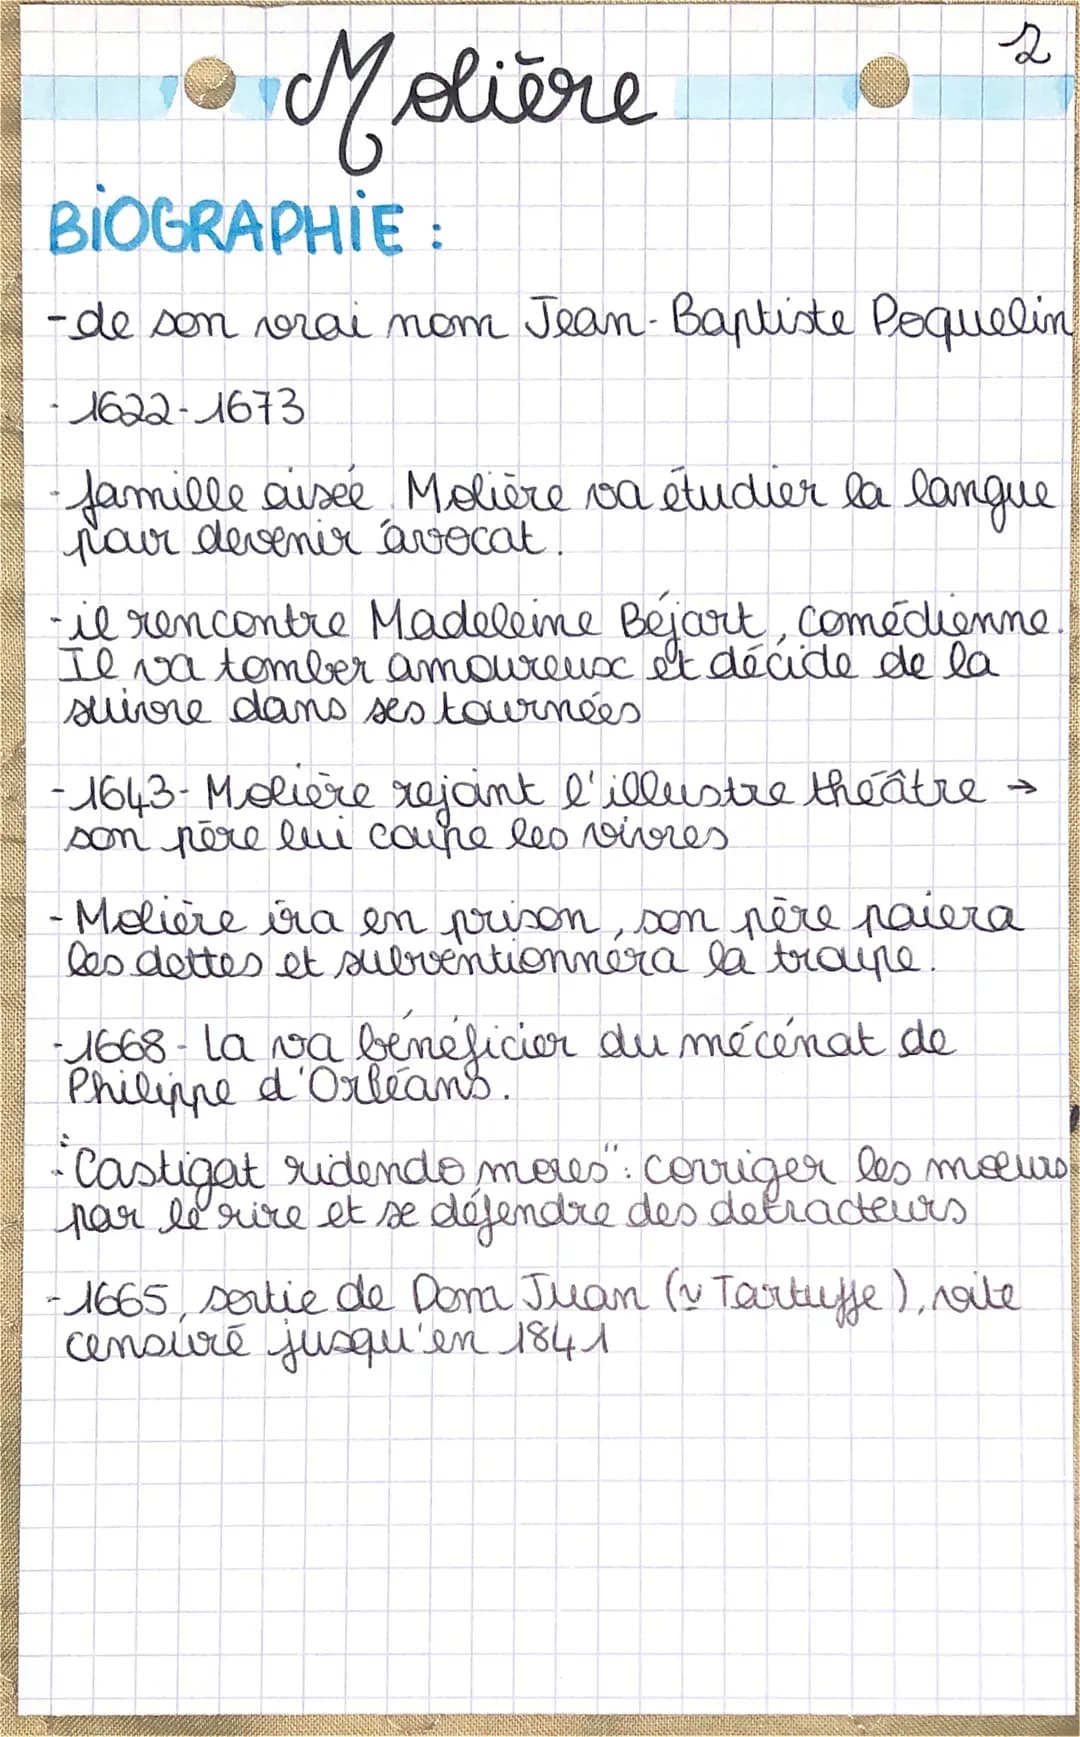 2
Molière
BIOGRAPHIE :
- de son vrai nom Jean-Baptiste Poquelin
- 1622-1673
- famille aisée. Molière va étudier la langue
pour devenir avocat.
- il rencontre Madeleine Béjart, comédienne.
Il va tomber amoureux et décide de la
suivre dans ses tournées
- 1643- Molière rejoint l'illustre théâtre →
son père lui coupe les vivres
- Molière ira en prison, son père paiera
les dettes et subventionnera la troupe.
- 1668 - La va bénéficier du mécénat de
Philippe d'Orléans.
- "Castigat ridendo mores": corriger les mœurs
par le rire et se défendre des detracteurs
- 1665, sortie de Dom Juan (~ Tartuffe), vite
censuré jusqu'en 1841